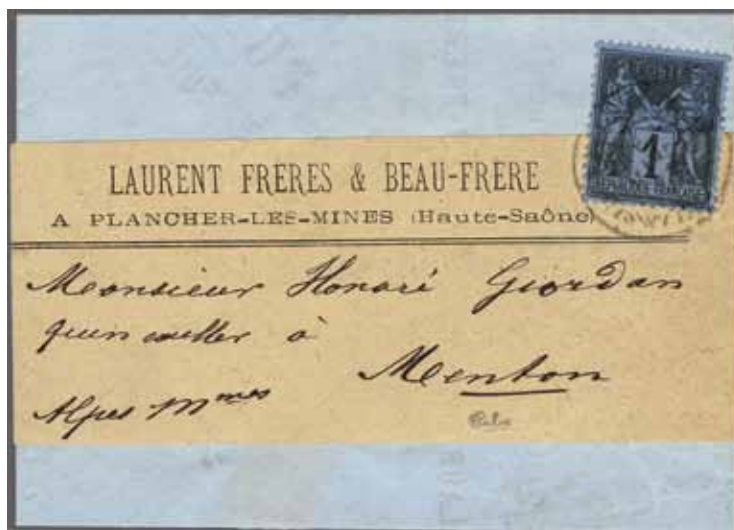 POSTE
1
REPUBLIQUE FRANÇAISE
LAURENT FRERES & BEAU-FRERE
A PLANCHER-LES-MINES (Haute-Saône)
Monsieur Honoré Giordan
à
Menton
Alpes Mmes
Calves